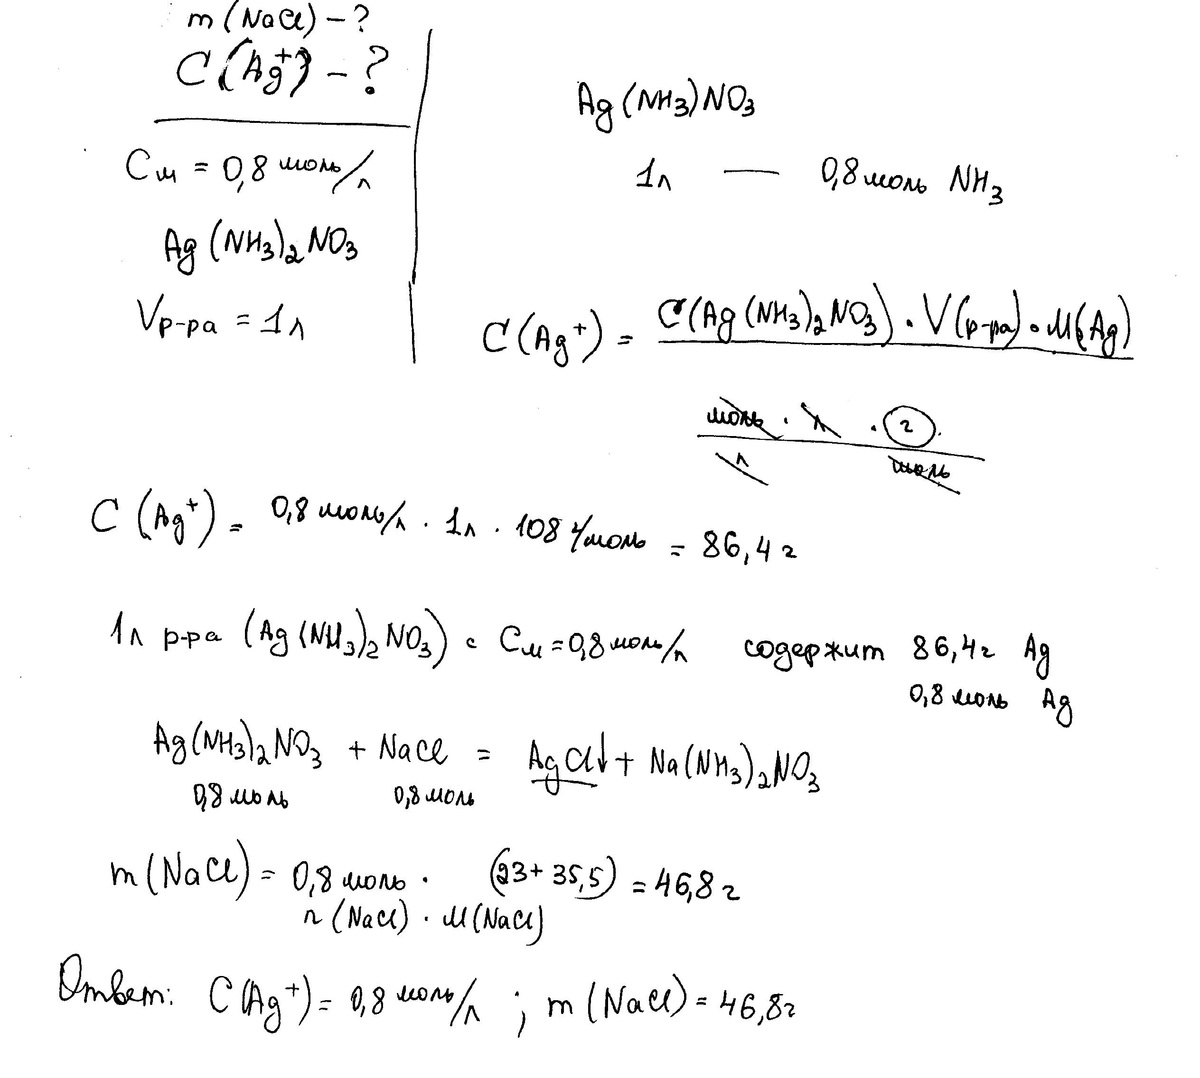 m (NaCl) – ?
C (Ag⁺) – ?
Cм = 0,8 моль/л
Ag (NH₃)₂ NO₃
Vр-ра = 1л
Ag (NH₃) NO₃
1л — 0,8 моль NH₃
C (Ag⁺) = C(Ag (NH₃)₂ NO₃) · V(р-ра) · M(Ag)
моль · л · г
л моль
C (Ag⁺) = 0,8 моль/л · 1л · 108 г/моль = 86,4 г
1л р-ра (Ag (NH₃)₂ NO₃) с Cм = 0,8 моль/л содержит 86,4 г Ag
0,8 моль Ag
Ag(NH₃)₂ NO₃ + NaCl = AgCl↓ + Na(NH₃)₂ NO₃
0,8 моль 0,8 моль
m (NaCl) = 0,8 моль · (23 + 35,5) = 46,8 г
n (NaCl) · M (NaCl)
Ответ: C(Ag⁺) = 0,8 моль/л ; m (NaCl) = 46,8 г